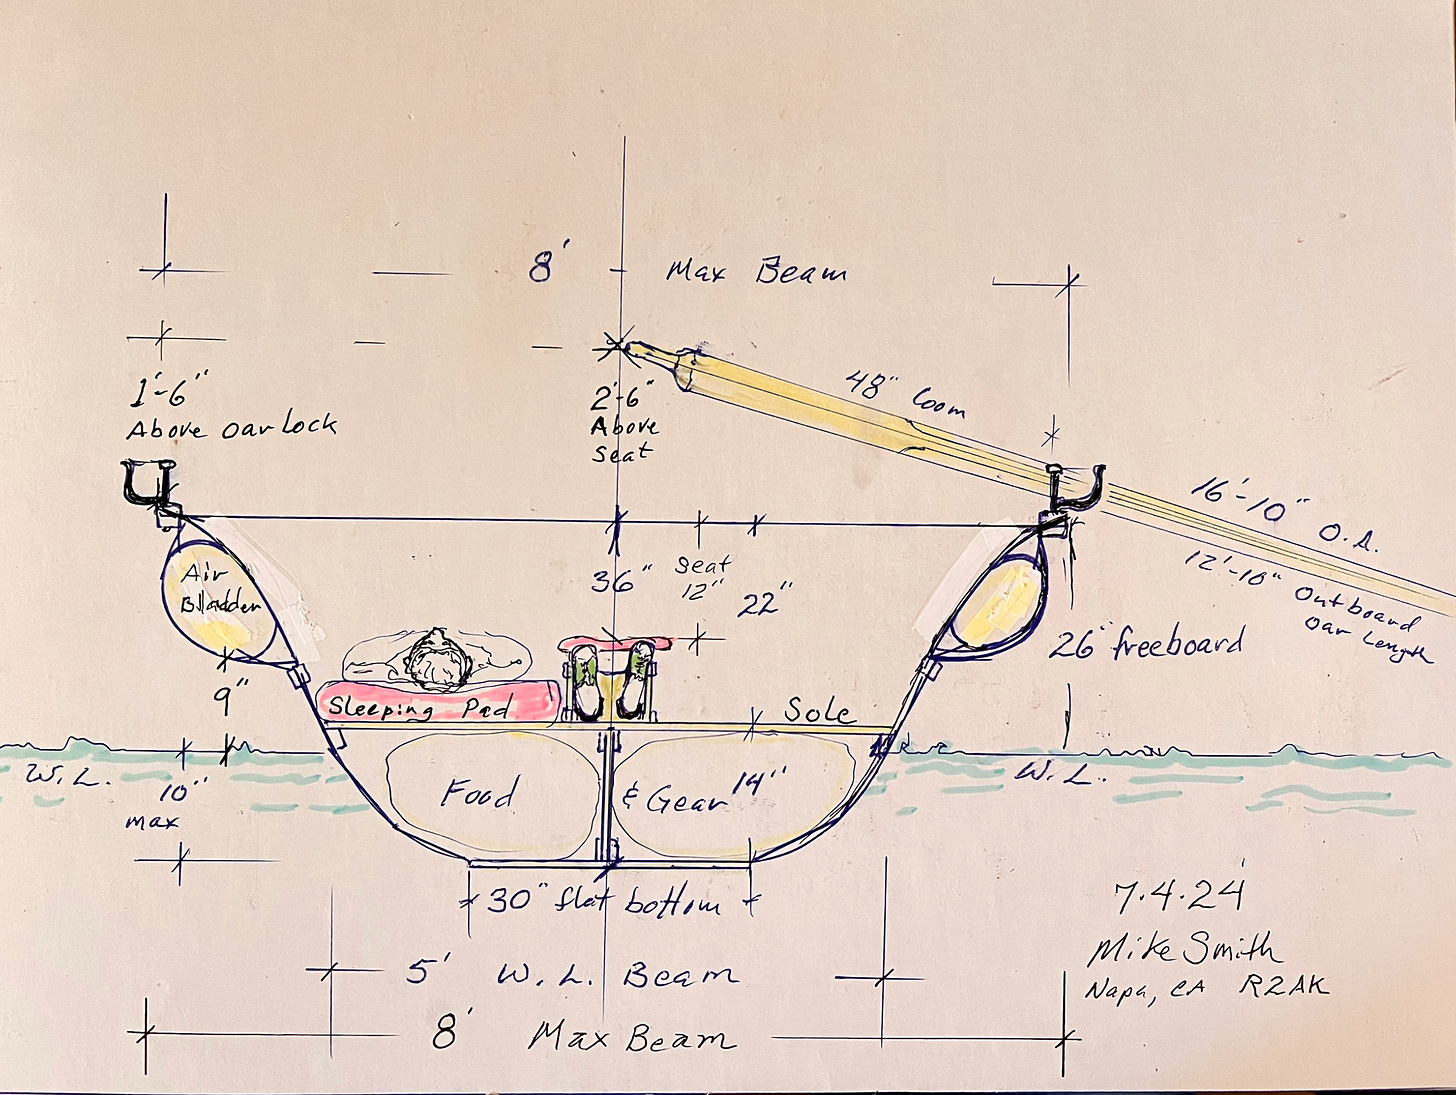 8' Max Beam
1'-6"
Above Oar Lock
2'-6"
Above
Seat
48" Loom
16'-10" O.A.
12'-10" Outboard
Oar Length
Air
Bladder
36"
Seat
12"
22"
26" freeboard
9"
Sleeping Pad
Sole
W.L.
W.L.
10"
max
Food
& Gear 14"
30" flat bottom
5' W.L. Beam
8' Max Beam
7.4.24'
Mike Smith
Napa, CA R2AK